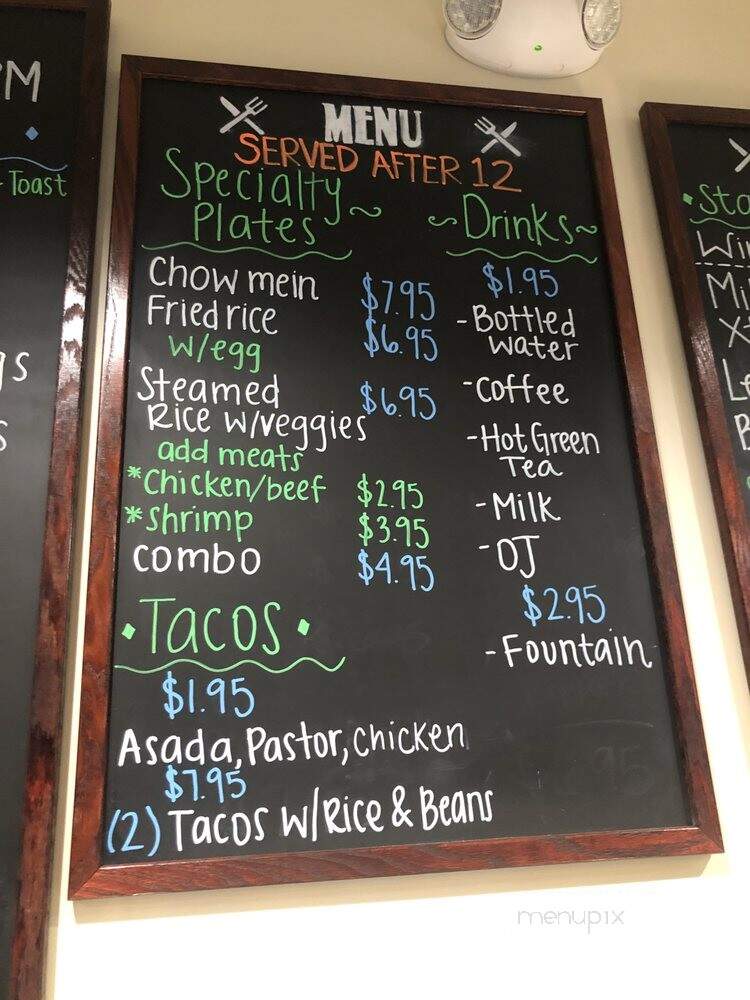 M
Toast
gs
s
MENU
SERVED AFTER 12
Specialty
Plates
Chow mein $7.95
Fried rice $6.95
w/egg
Steamed $6.95
Rice w/veggies
add meats
*Chicken/beef $2.95
*Shrimp $3.95
combo $4.95
Tacos
$1.95
Asada, Pastor, chicken
$7.95
(2) Tacos w/Rice & Beans
Drinks
$1.95
-Bottled
water
-Coffee
-Hot Green
Tea
-Milk
-OJ
$2.95
-Fountain
Sta
Wi
Mi
X
Le
B
menupix